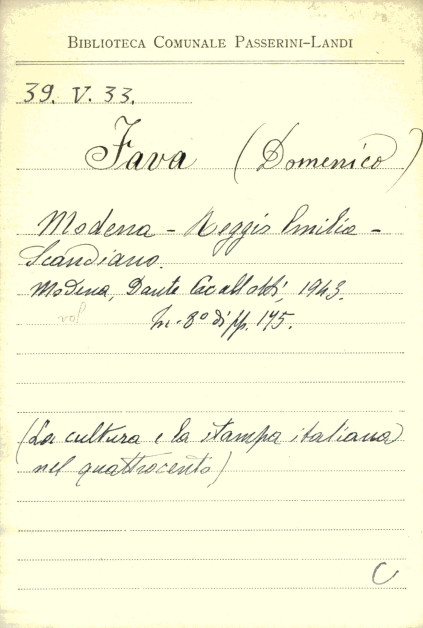 BIBLIOTECA COMUNALE PASSERINI-LANDI
39. V. 33.
Fava (Domenico)
Modena - Reggio Emilia -
Scandiano.
Modena, Dante Cavallotti, 1943.
vol In-8° di pp. 175.
(La cultura e la stampa italiana
nel quattrocento)
C